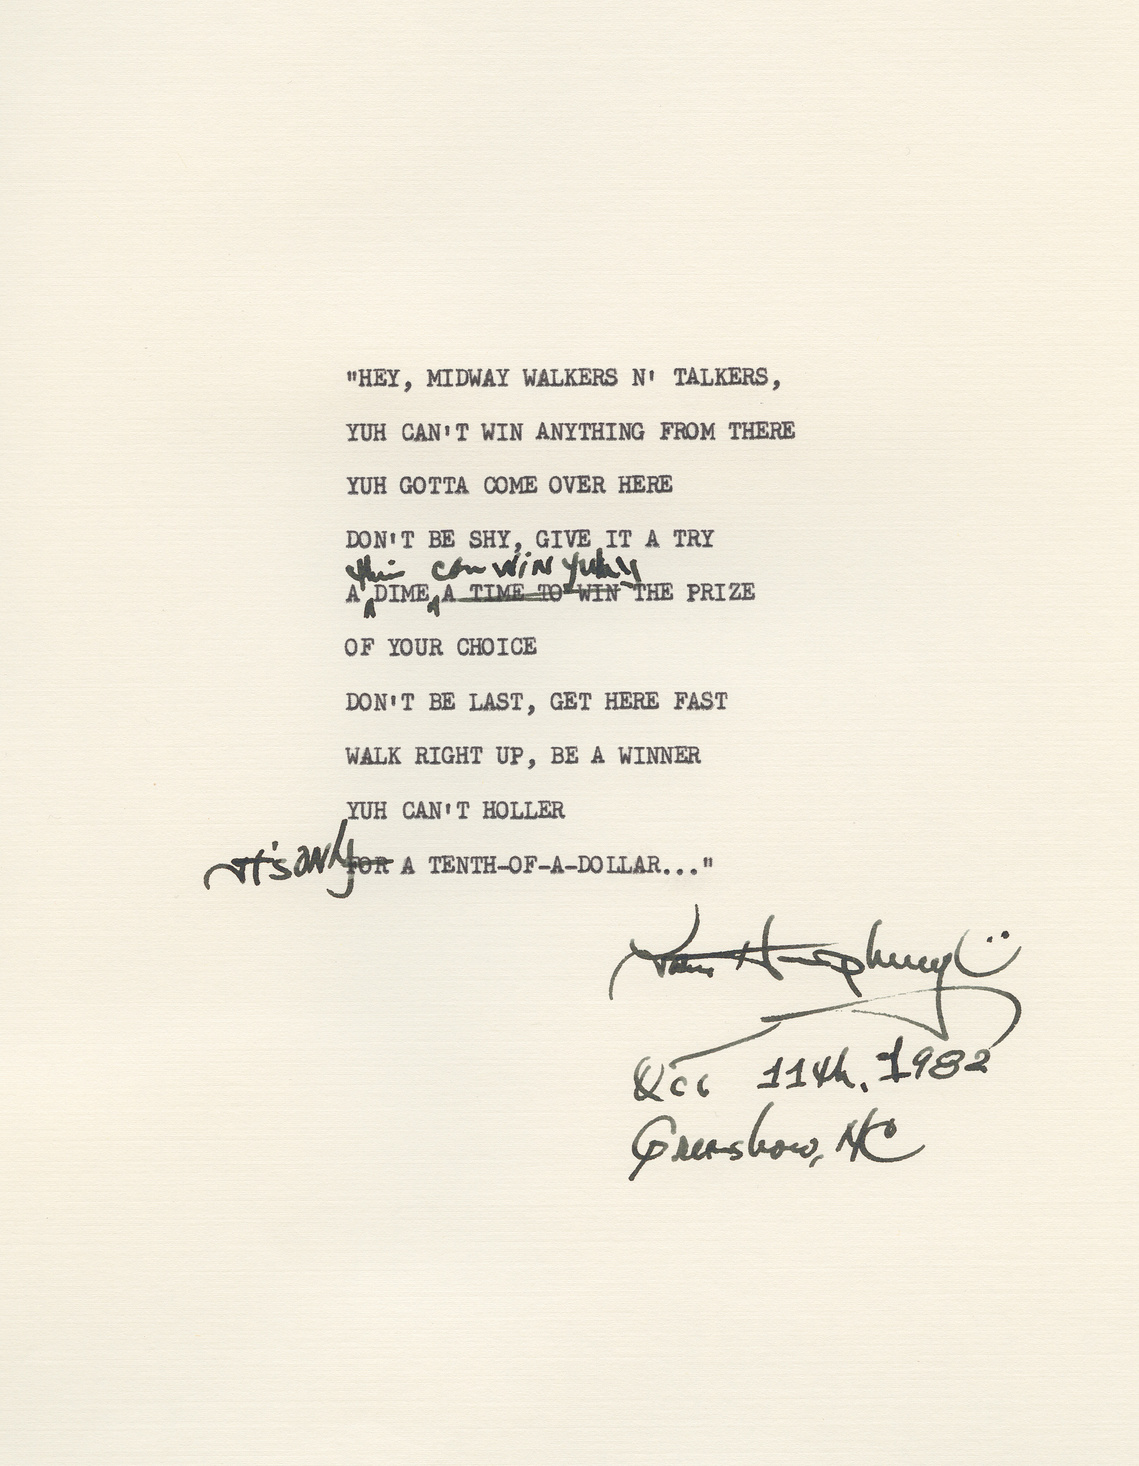 "HEY, MIDWAY WALKERS N' TALKERS,
YUH CAN'T WIN ANYTHING FROM THERE
YUH GOTTA COME OVER HERE
DON'T BE SHY, GIVE IT A TRY
thin can WIN yuh
A DIME A TIME TO WIN THE PRIZE
OF YOUR CHOICE
DON'T BE LAST, GET HERE FAST
WALK RIGHT UP, BE A WINNER
YUH CAN'T HOLLER
It's only FOR A TENTH-OF-A-DOLLAR..."
Humphrey
Oct 11th, 1982
Greensboro, NC